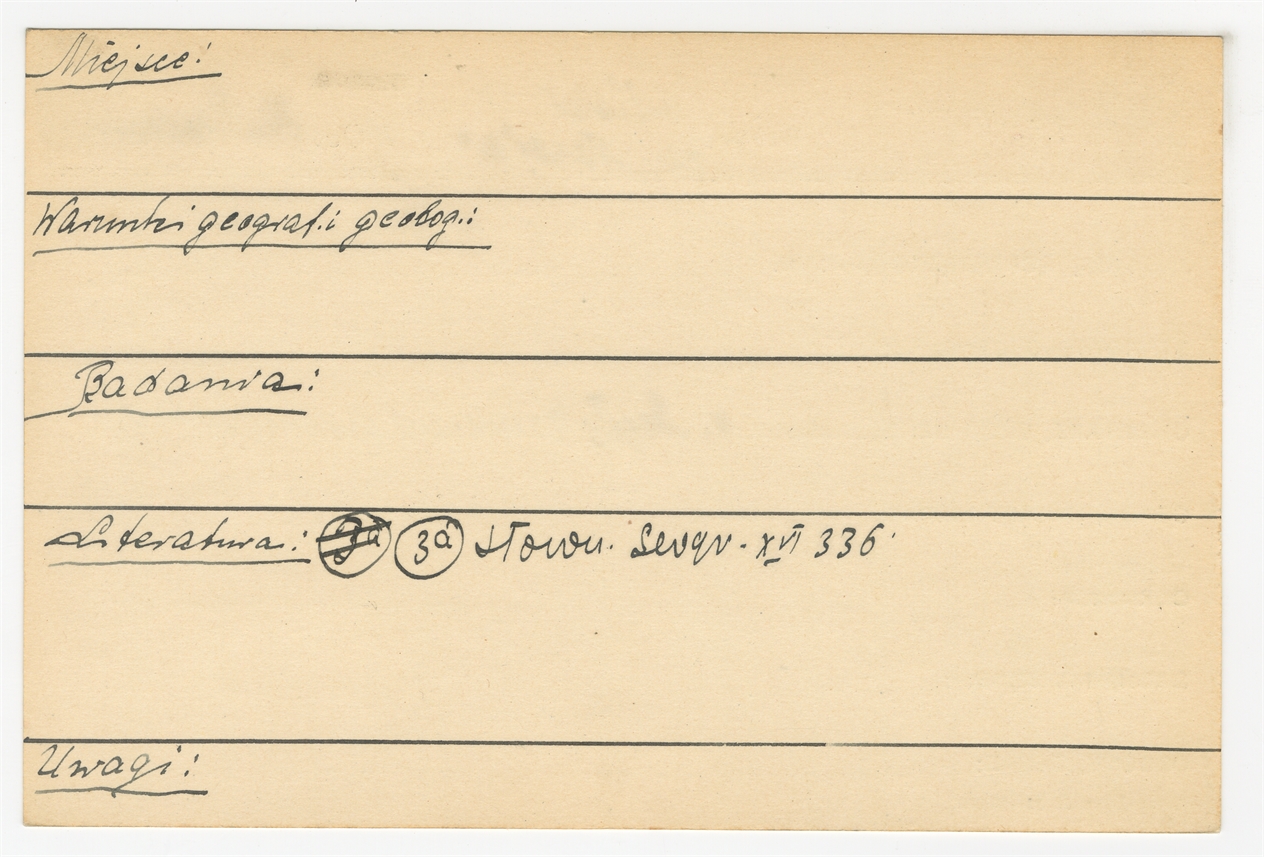 Miejsce:
Warunki geograf. i geolog.:
Badania:
Literatura: 3a 3a Słown. Geogr. XVI 336
Uwagi: